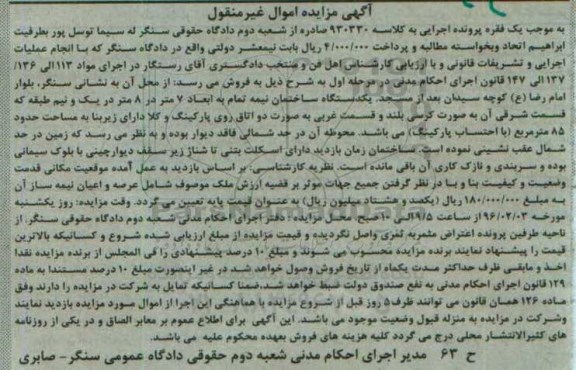 آگهی مزایده اموال غیرمنقول
به موجب یک فقره پرونده اجرایی به کلاسه ۹۳۰۳۳۰ صادره از شعبه دوم دادگاه حقوقی سنگر له سیما توسل پور بطرفیت
ابراهیم اتحاد وبخواسته مطالبه و پرداخت ۴/۰۰۰/۰۰۰ ریال بابت نیمعشر دولتی واقع در دادگاه سنگر که با انجام عملیات
اجرایی و تشریفات قانونی و با ارزیابی کارشناس اهل فن ومنتخب دادگستری آقای رستگار در اجرای مواد ۱۱۳ الی ۱۳۶/
۱۳۷ الی ۱۴۷ قانون اجرای احکام مدنی در مرحله اول به شرح ذیل به فروش می رسد: از محل آن به نشانی سنگر، بلوار
امام رضا (ع) کوچه سیدان بعد از مسجد. یکدستگاه ساختمان نیمه تمام به ابعاد ۷ متر در ۸ متر در یک و نیم طبقه که
قسمت شرقی آن به صورت کرسی بلند و قسمت غربی به صورت دو اتاق روی پارکینگ و کلا دارای زیربنا به مساحت حدود
۸۵ مترمربع (با احتساب پارکینگ) می باشد. محوطه آن در حد شمالی فاقد دیوار بوده و به نظر می رسد که زمین در حد
شمال عقب نشینی نموده است. ساختمان زمان بازدید دارای اسکلت بتنی تا شناژ زیر سقف دیوارچینی با بلوک سیمانی
بوده و سربندی و نازک کاری آن باقی مانده است. نظریه کارشناسی: بر اساس بازدید به عمل آمده موقعیت مکانی قدمت
وضعیت و کیفیت بنا و با در نظر گرفتن جمیع جهات موثر بر قضیه ارزش ملک موصوف شامل عرصه و اعیان نیمه ساز آن
به مبلغ ۱۸۰/۰۰۰/۰۰۰ ریال (یکصد و هشتاد میلیون ریال) به عنوان قیمت پایه تعیین می گردد. وقت مزایده: روز یکشنبه
مورخه ۹۶/۰۲/۰۳ از ساعت ۹/۵ الی ۱۰ صبح. محل مزایده: دفتر اجرای احکام مدنی شعبه دوم دادگاه حقوقی سنگر. از
ناحیه طرفین پرونده اعتراض مثمربه ثمری واصل نگردیده و قیمت مزایده از مبلغ ارزیابی شده شروع و کسانیکه بالاترین
قیمت را پیشنهاد نمایند برنده مزایده محسوب می شوند و مبلغ ۱۰ درصد پیشنهادی را فی المجلس از برنده مزایده نقدا
اخذ و مابقی ظرف حداکثر مدت یکماه از تاریخ فروش وصول خواهد شد در غیر اینصورت مبلغ ۱۰ درصد مستندا به ماده
۱۲۹ قانون اجرای احکام مدنی به نفع صندوق دولت ضبط خواهد شد.ضمنا کسانیکه تمایل به شرکت در مزایده را دارند وفق
ماده ۱۲۶ همان قانون می توانند ظرف ۵ روز قبل از شروع مزایده با هماهنگی این اجرا از اموال مورد مزایده بازدید نمایند
وشرکت در مزایده به منزله قبول وضعیت موجود می باشد. این آگهی برای اطلاع عموم بر معابر الصاق و در یکی از روزنامه
های کثیرالانتشار محلی درج می گردد کلیه هزینه های فروش بعهده محکوم علیه می باشد.
ح ۶۳ مدیر اجرای احکام مدنی شعبه دوم حقوقی دادگاه عمومی سنگر- صابری